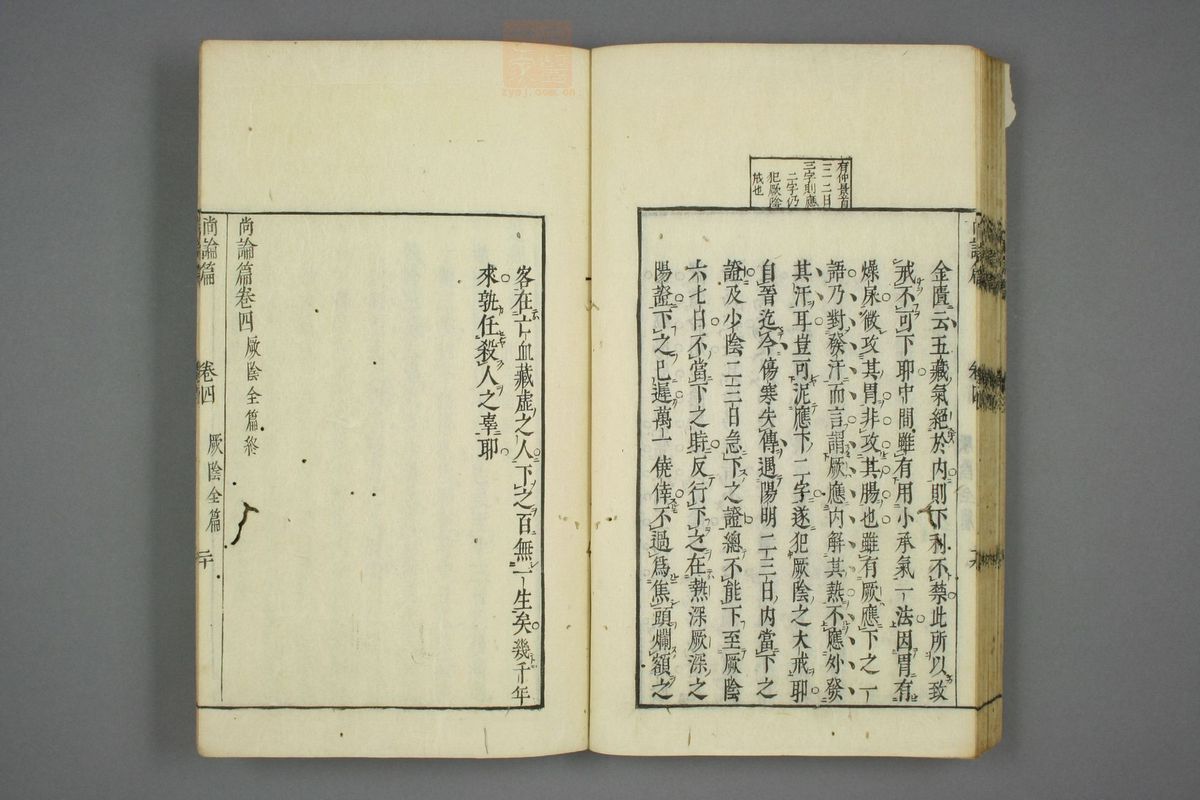 有仲景首
三一二日
三字則應
二字仍
犯厥陰
戒也
金匱云五藏氣絕於內則下利不禁此所以致
戒不可下耶中間雖有用小承氣一法因胃有
燥屎微攻其胃非攻其腸也雖有厥應下之一
語乃對發汗而言謂厥應內解其熱不應外發
其汗耳豈可泥應下二字遂犯厥陰之大戒耶
自晉迄今傷寒失傳遇陽明二三日內當下之
證及少陰二三日急下之證總不能下至厥陰
六七日不當下之時反行下之在熱深厥深之
陽證下之已遲萬一僥倖不過為焦頭爛額之
客在亡血藏虛之人下之百無一生矣幾千年
來孰任殺人之辜耶
尚論篇卷四厥陰全篇終
尚論篇 卷四 厥陰全篇 二十
zyyj.com.cn